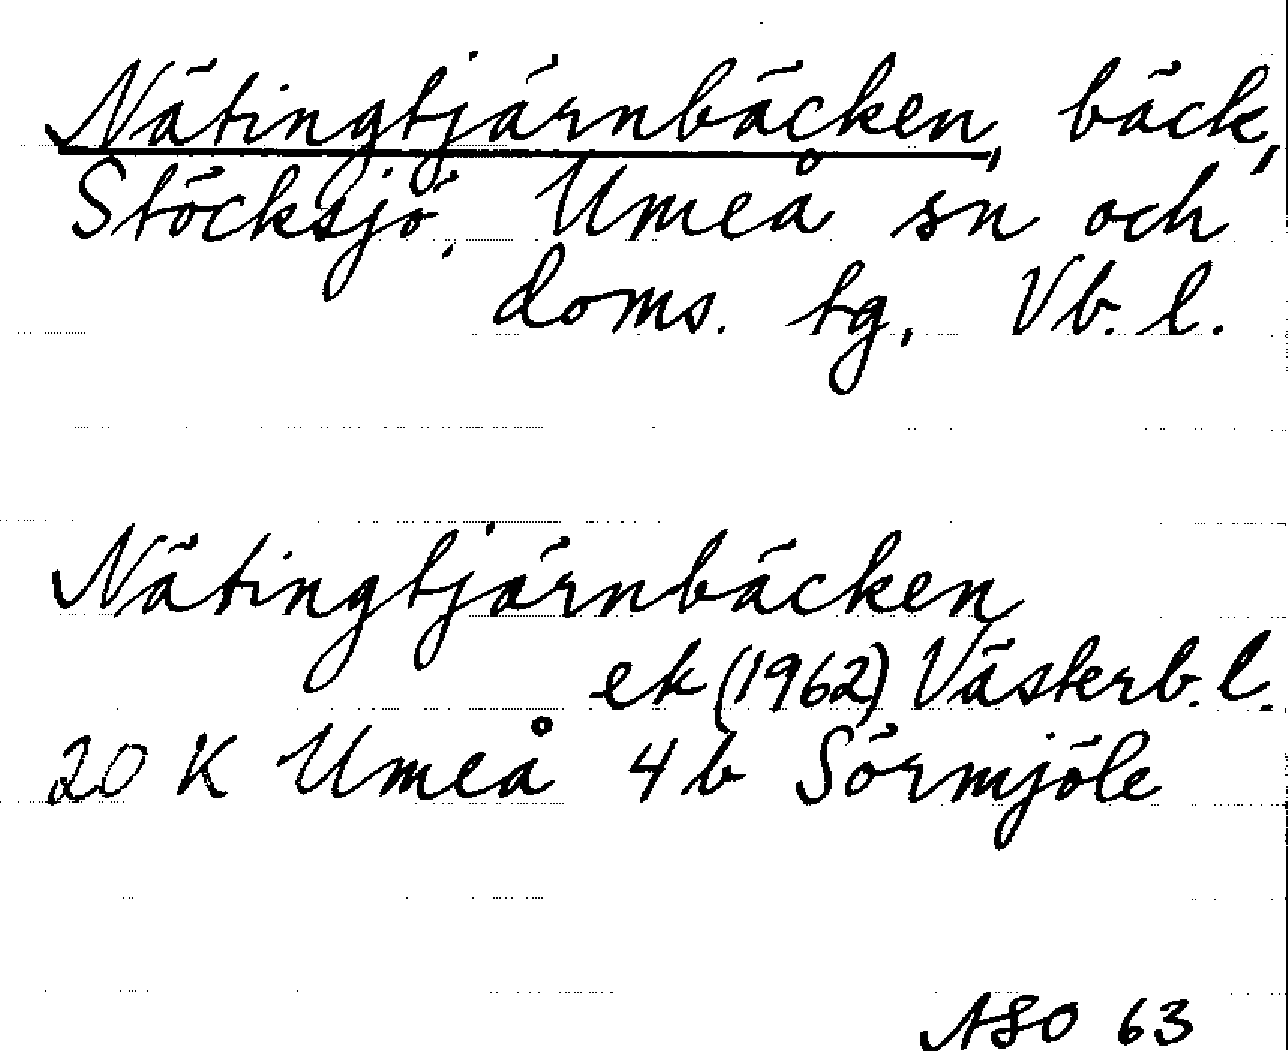 Nätingtjärnbäcken, bäck,
Stöcksjö, Umeå sn och
doms. tg, Vb. l.
Nätingtjärnbäcken
ek (1962) Västerb. l.
20 K Umeå 4 b Sörmjöle
ASO 63